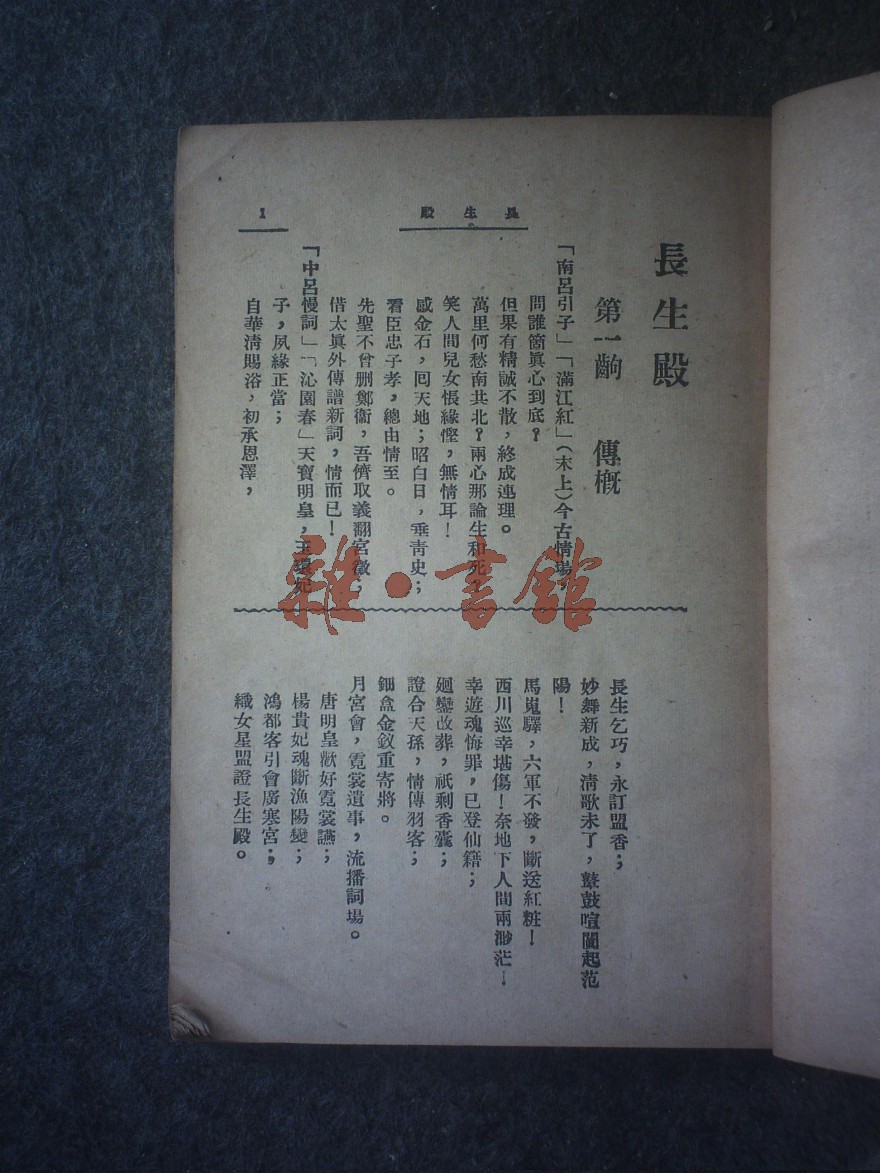 長生殿
1
長生殿
第一齣 傳概
「南呂引子」「滿江紅」(末上)今古情場,
問誰箇眞心到底?
但果有精誠不散,終成連理。
萬里何愁南共北?兩心那論生和死?
笑人間兒女悵緣慳,無情耳!
感金石,回天地;昭白日,垂靑史;
看臣忠子孝,總由情至。
先聖不曾刪鄭衞,吾儕取義翻宮徵;
借太眞外傳譜新詞,情而已!
「中呂慢詞」「沁園春」天寶明皇,玉環妃
子,夙緣正當;
自華淸賜浴,初承恩澤,
長生乞巧,永訂盟香;
妙舞新成,淸歌未了,鼙鼓喧闐起范
陽!
馬嵬驛,六軍不發,斷送紅粧!
西川巡幸堪傷!奈地下人間兩渺茫!
幸遊魂悔罪,已登仙籍;
廻鑾改葬,祇剩香囊;
證合天孫,情傳羽客;
鈿盒金釵重寄將。
月宮會,霓裳遺事,流播詞場。
唐明皇歡好霓裳讌;
楊貴妃魂斷漁陽變;
鴻都客引會廣寒宮;
織女星盟證長生殿。
雜·書館